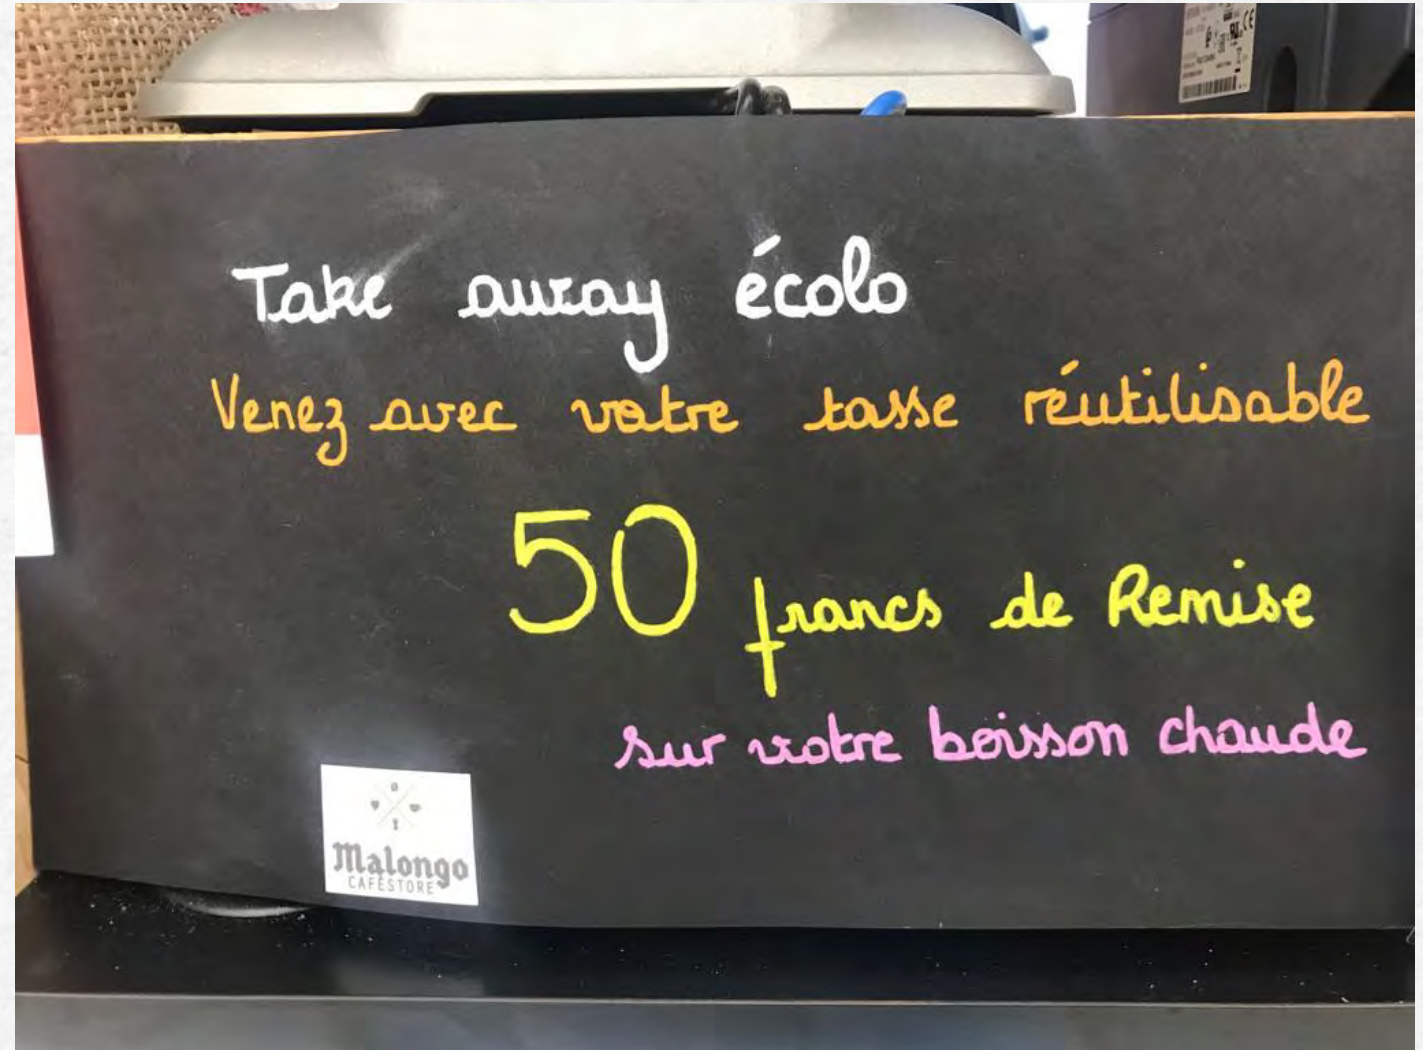 Take away écolo
Venez avec votre tasse réutilisable
50 francs de Remise
sur votre boisson chaude
Malongo
CAFÉSTORE